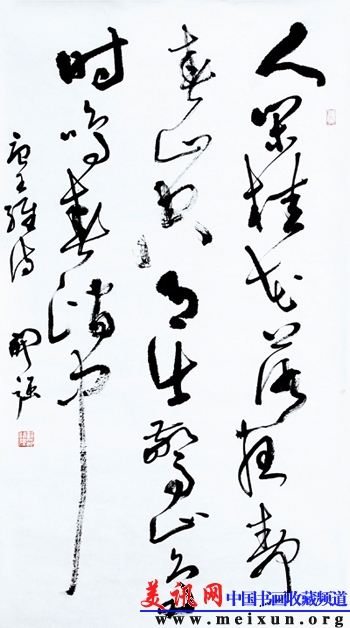 人闲桂花落夜静
春山空月出驚山鸟
时鸣春涧中
唐王维诗
美讯网 中国书画收藏频道
www.meixun.org